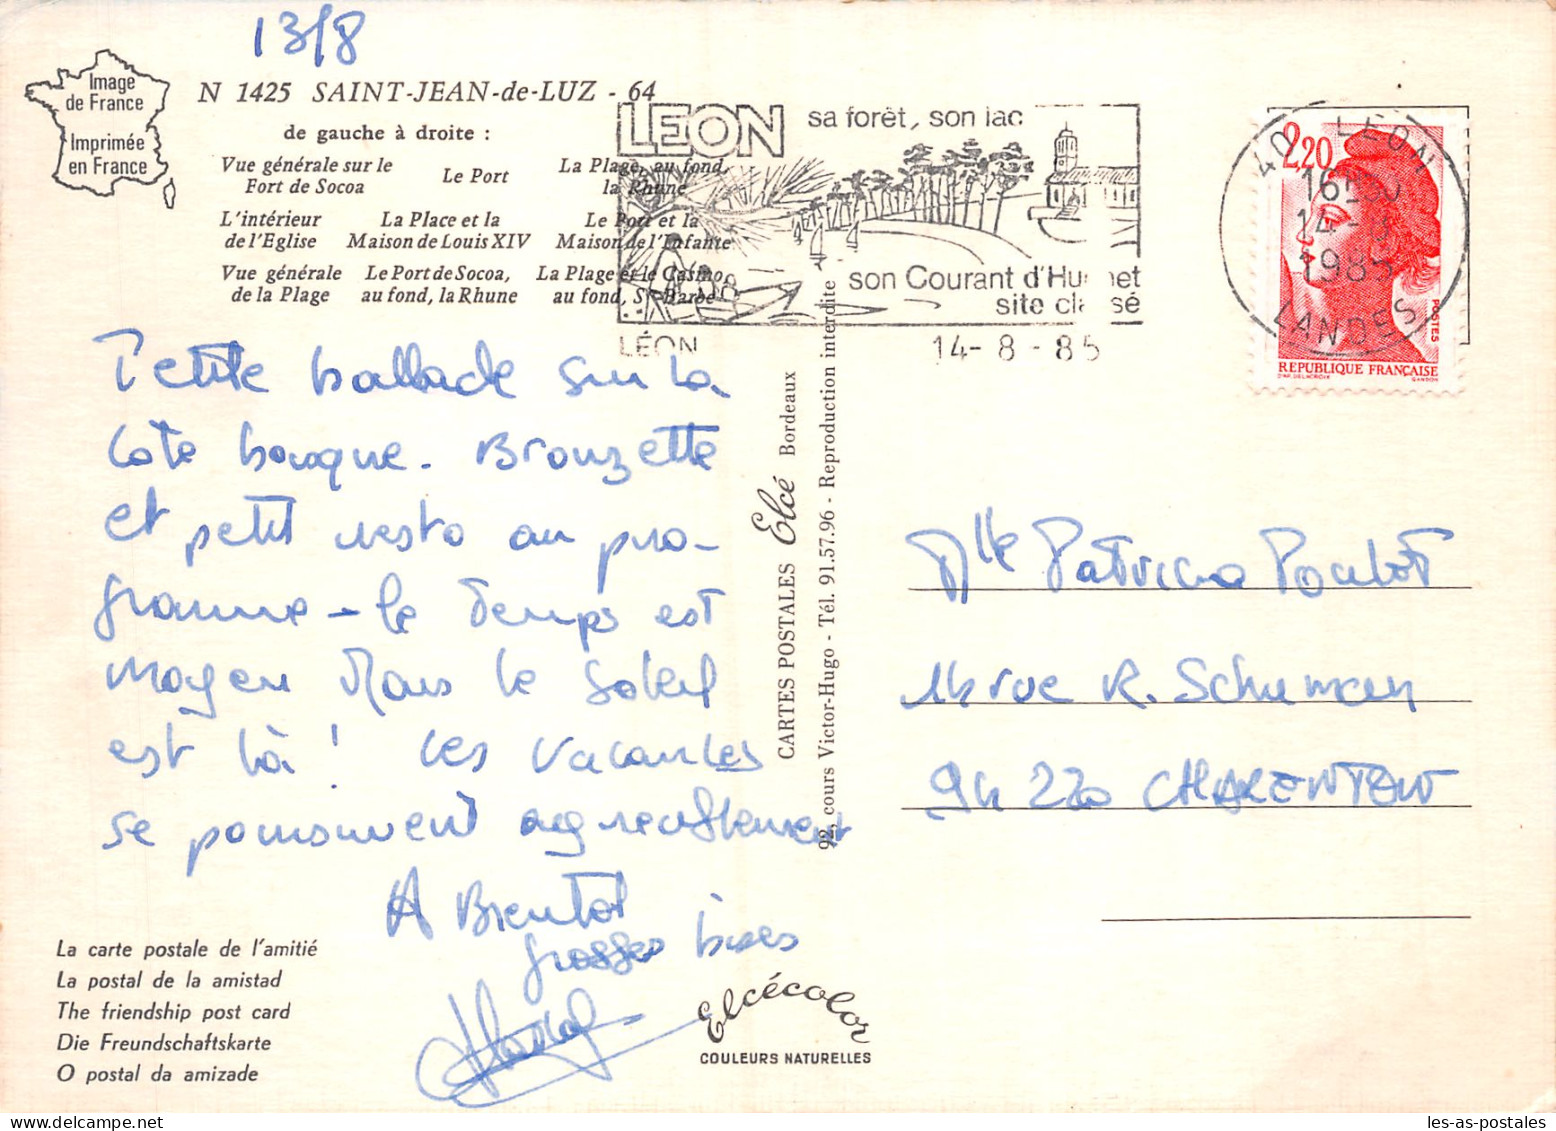 13/8
Image
de France
Imprimée
en France
N 1425 SAINT-JEAN-de-LUZ - 64
de gauche à droite :
Vue générale sur le
Fort de Socoa
Le Port
La Plage, au fond,
la Rhune
L'intérieur
de l'Eglise
La Place et la
Maison de Louis XIV
Le Port et la
Maison de l'Infante
Vue générale
de la Plage
Le Port de Socoa,
au fond, la Rhune
La Plage et le Casino,
au fond, Ste Barbe
LEON
sa forêt, son lac
son Courant d'Huchet
site classé
LÉON
14-8-85
40 LEON
16H30
14-8
1985
LANDES
2,20
POSTES
REPUBLIQUE FRANÇAISE
D'AP. DELACROIX
GANDON
Petite ballade sur la
Côte basque. Bronzette
et petit resto au pro-
gramme - le temps est
moyen mais le soleil
est là ! Les vacances
se poursuivent agréablement
A Bientôt
grosses bises
CARTES POSTALES Elcé Bordeaux
92, cours Victor-Hugo - Tél. 91.57.96 - Reproduction interdite
Mlle Patricia Poulot
14 rue R. Schuman
94 220 CHARENTON
La carte postale de l'amitié
La postal de la amistad
The friendship post card
Die Freundschaftskarte
O postal da amizade
Elcécolor
COULEURS NATURELLES
les-as-postales